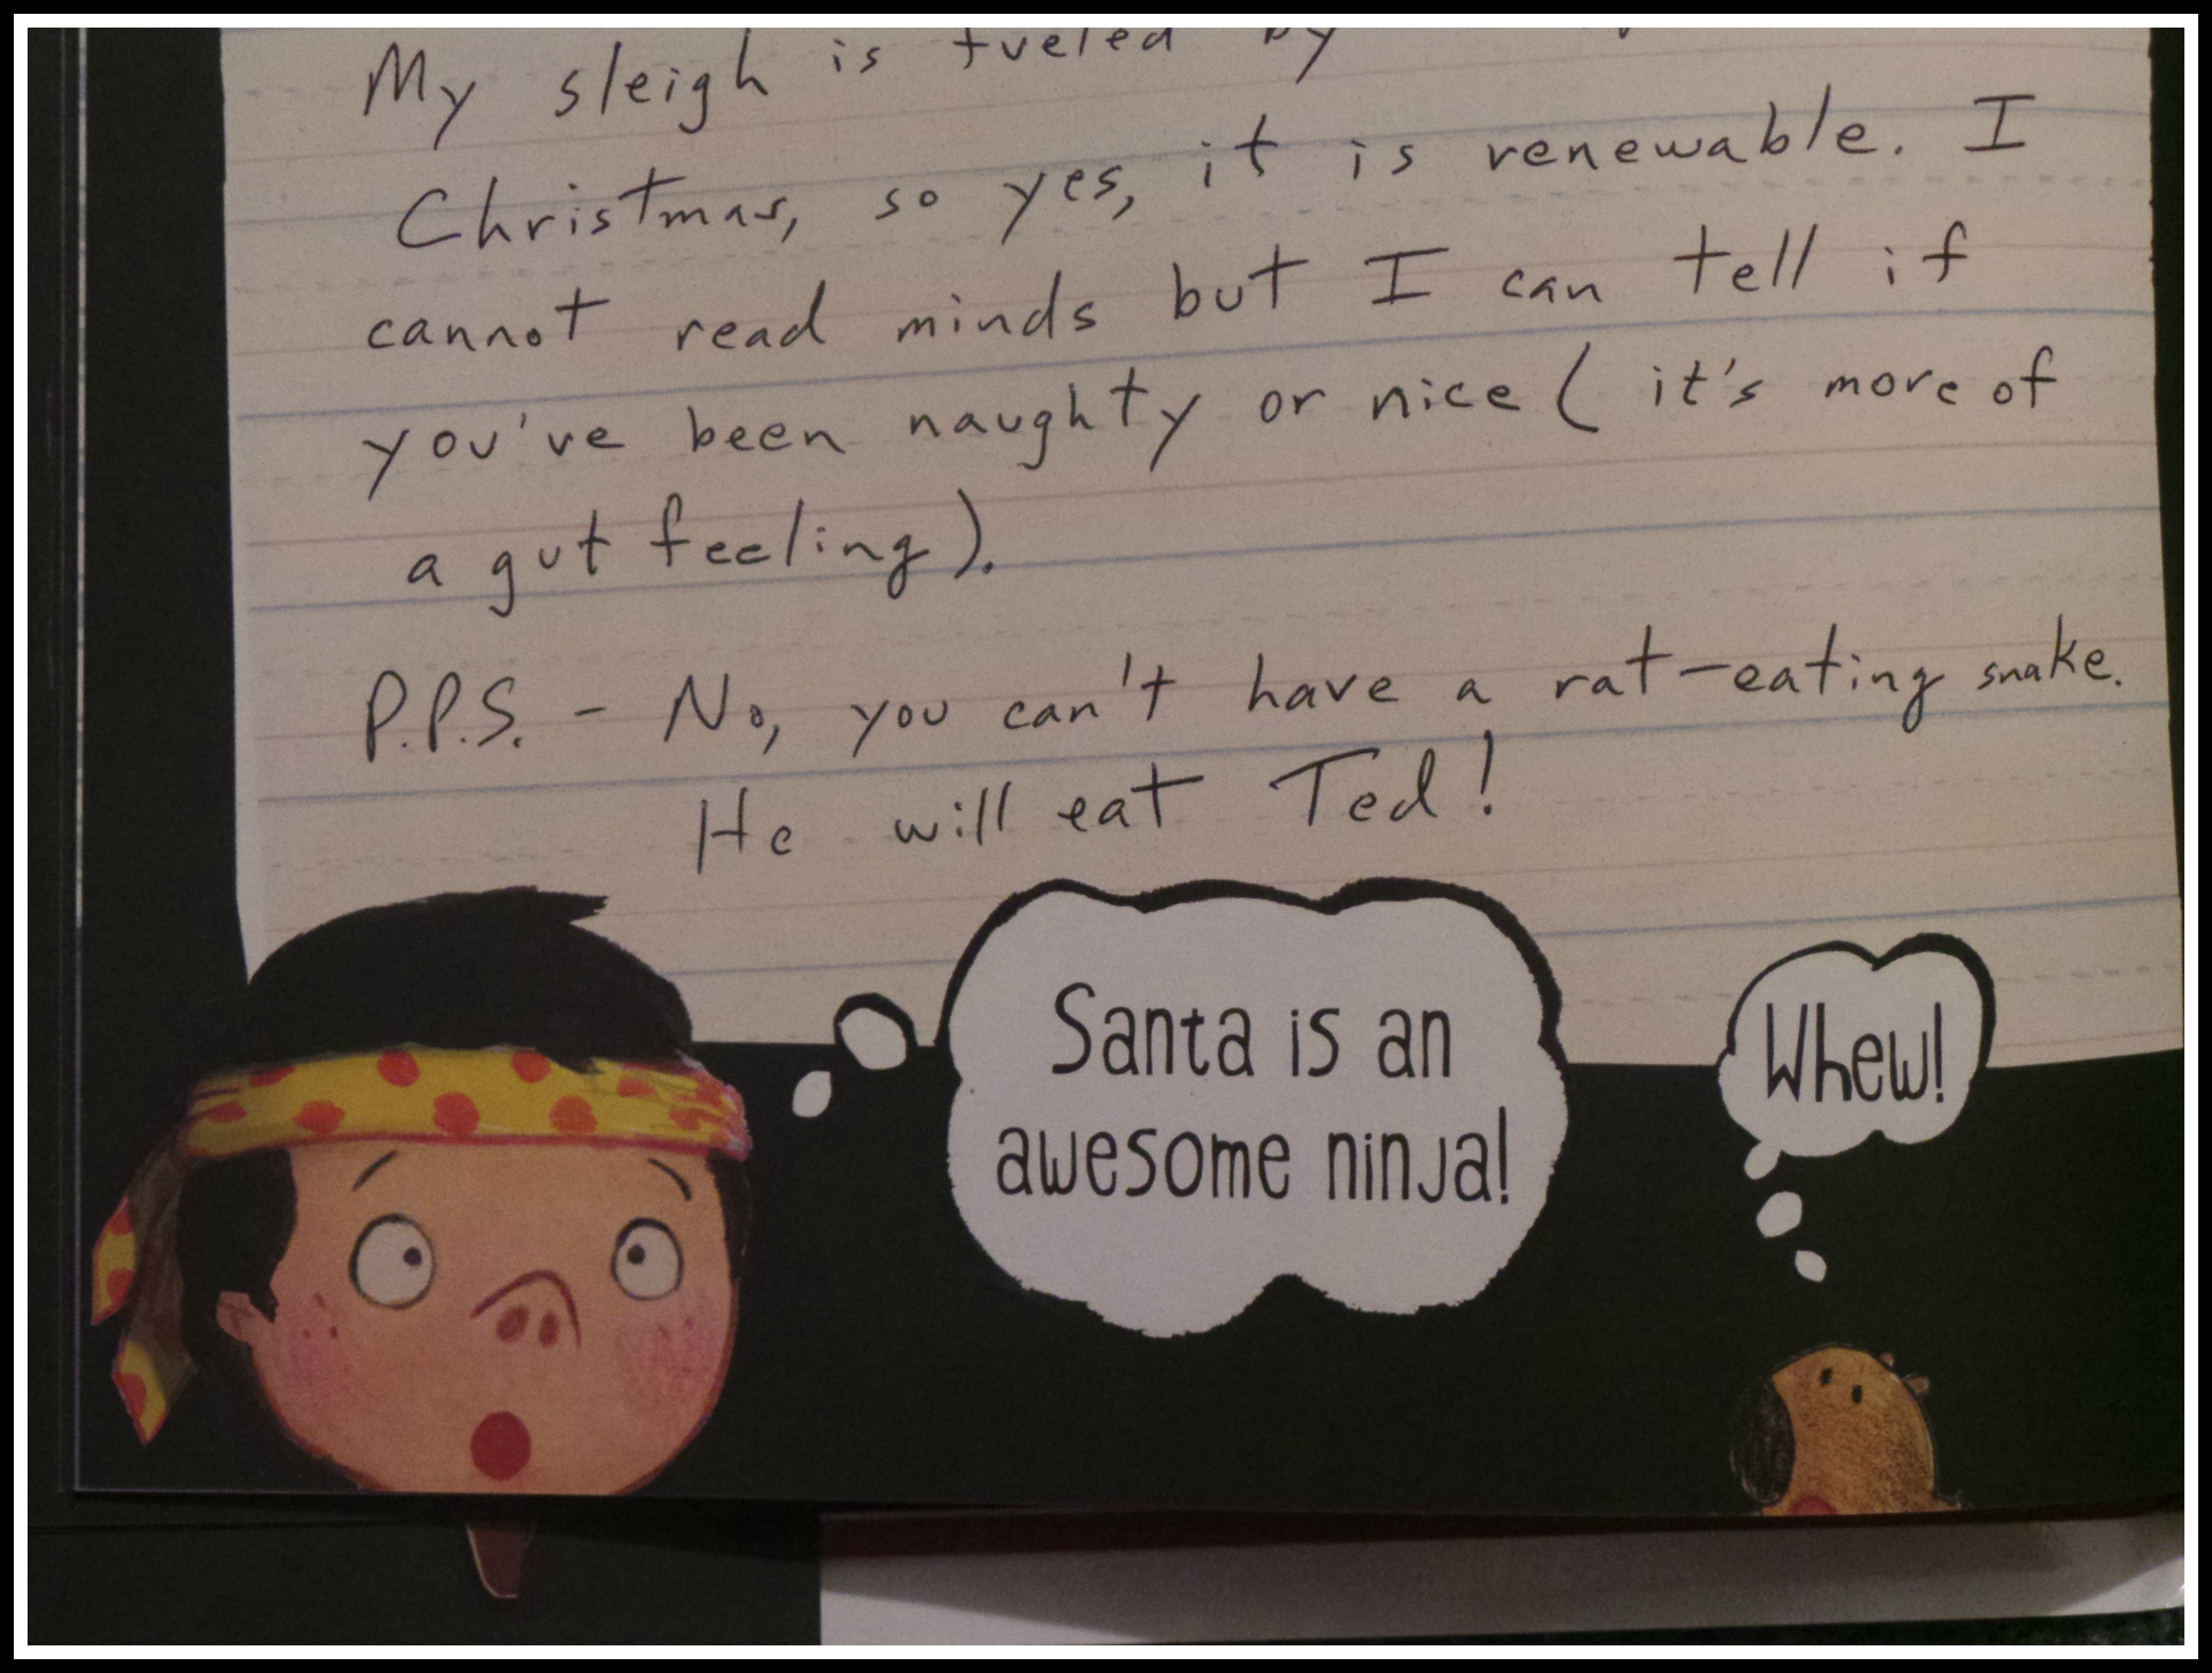 My sleigh is fueled by
Christmas, so yes, it is renewable. I
cannot read minds but I can tell if
you've been naughty or nice ( it's more of
a gut feeling).
P.P.S. - No, you can't have a rat-eating snake.
He will eat Ted!
Santa is an
awesome ninja!
Whew!